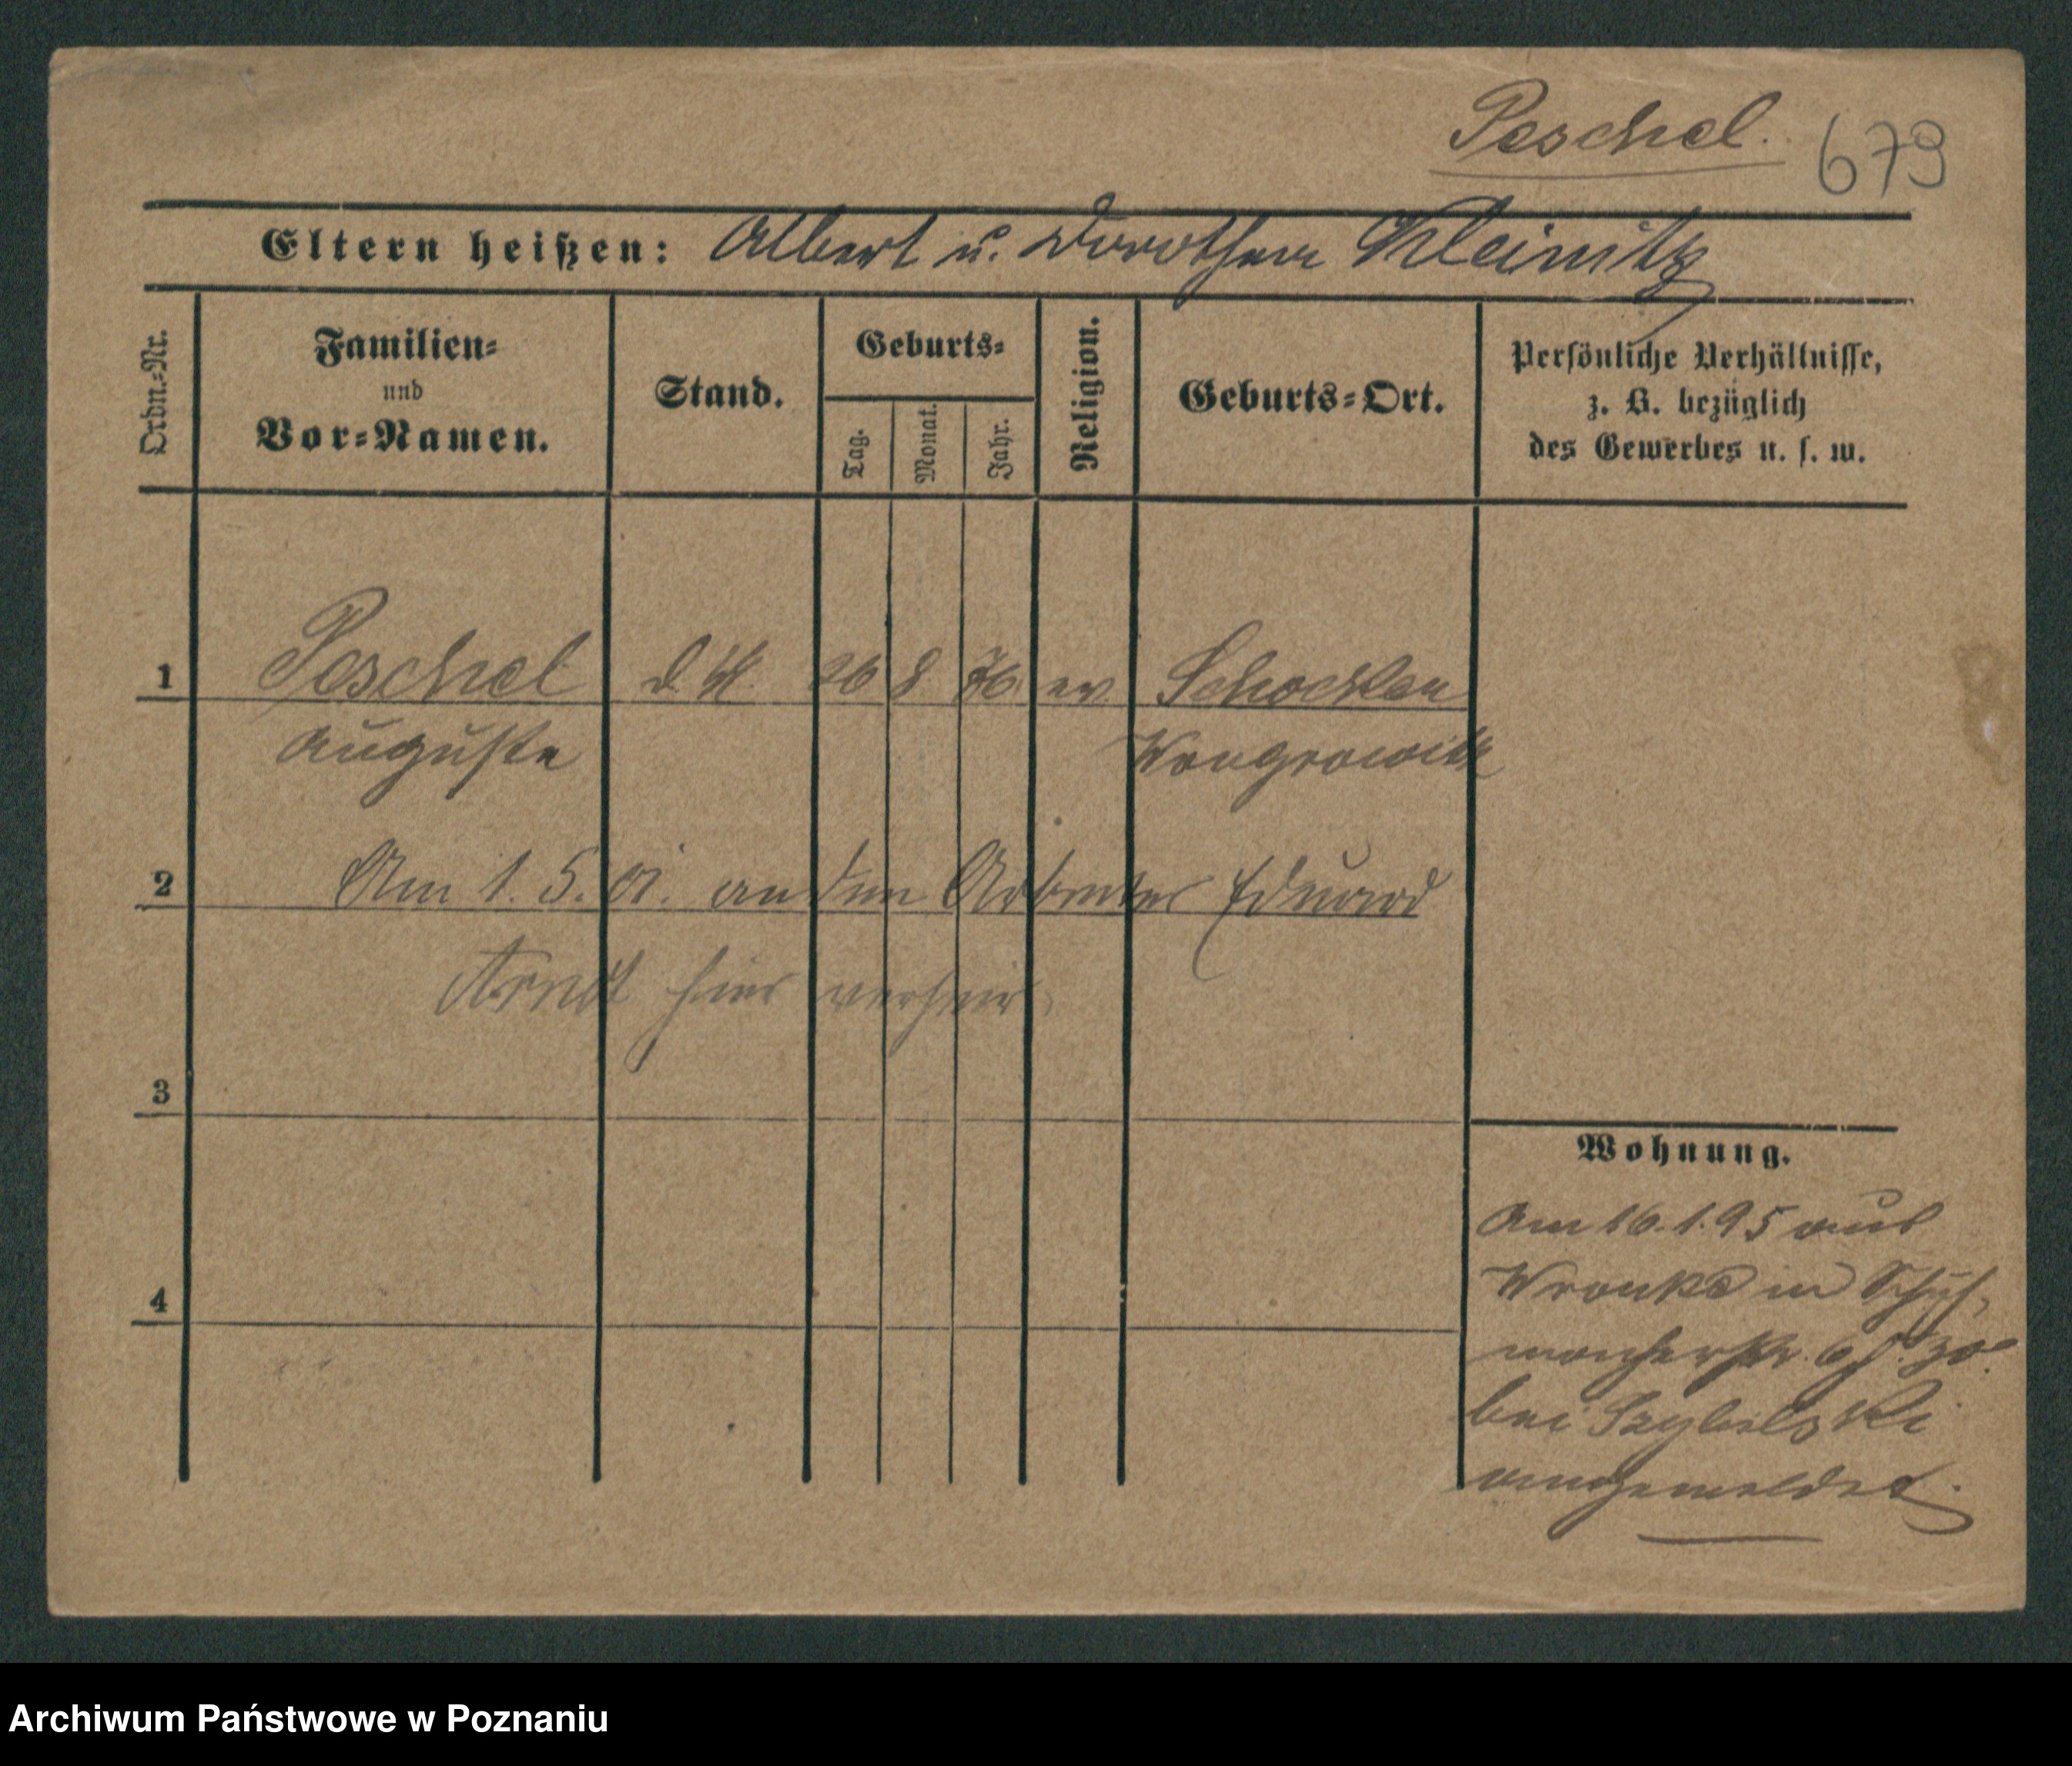 Peschel. 679
Eltern heißen: Albert u. Dorothea Kleinitz
Ordn.-Nr.
Familien-
und
Vor-Namen.
Stand.
Geburts-
Tag.
Monat.
Jahr.
Religion.
Geburts-Ort.
Persönliche Verhältnisse,
z. B. bezüglich
des Gewerbes u. s. w.
1 Peschel d. M. 26 8 76 ev. Schocken
Auguste Wongrowitz
2 Am 1. 5. 01. an den Arbeiter Eduard
Arndt hier verheir.
3
4
Wohnung.
Am 16.1.95 aus
Wronke in Schuh-
macherstr.
bei Szybilski
angemeldet.
Archiwum Państwowe w Poznaniu